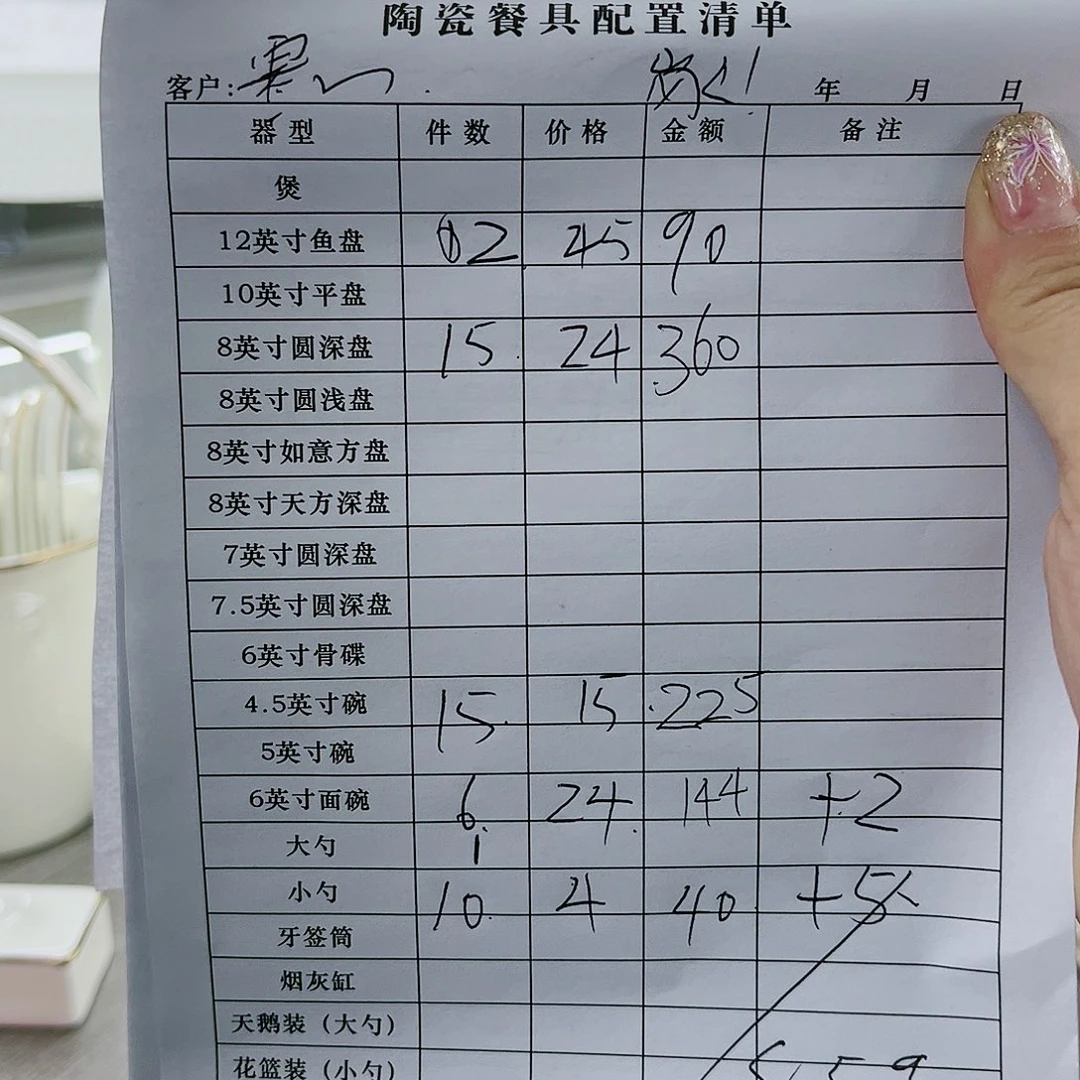 陶瓷餐具配置清单
客户: 年 月 日
器型 件数 价格 金额 备注
煲
12英寸鱼盘 02 45 90
10英寸平盘
8英寸圆深盘 15 24 360
8英寸圆浅盘
8英寸如意方盘
8英寸天方深盘
7英寸圆深盘
7.5英寸圆深盘
6英寸骨碟
4.5英寸碗 15 15 225
5英寸碗
6英寸面碗 6 24 144 +2
大勺 1
小勺 10 4 40 +5
牙签筒
烟灰缸
天鹅装（大勺）
花篮装（小勺）